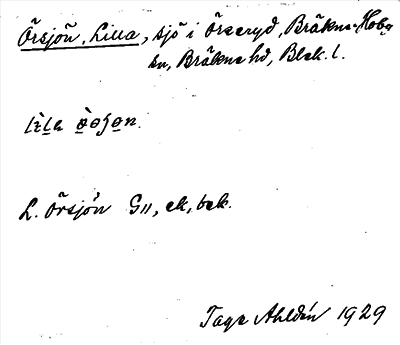 Örsjön, Lilla, sjö i Öreryd, Bräkne-Hoby
sn, Bräkne hd, Blek. l.
lìla
L. Örsjön G11, ek, bek.
Tage Ahldén 1929